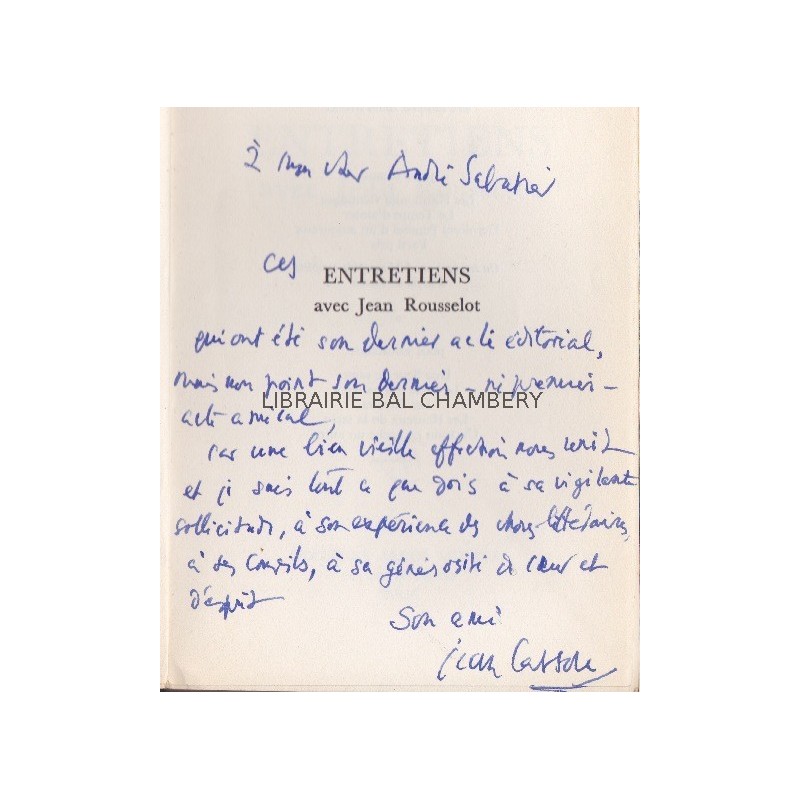 À mon cher André Sabatier
ces
ENTRETIENS
avec Jean Rousselot
qui ont été son dernier acte éditorial,
mais non point son dernier – ni premier –
LIBRAIRIE BAL CHAMBERY
acte amical,
car une bien vieille affection nous unit
et je sais tout ce que dois à sa vigilante
sollicitude, à son expérience des choses littéraires,
à ses conseils, à sa générosité de cœur et
d'esprit
Son ami
Jean Cassou